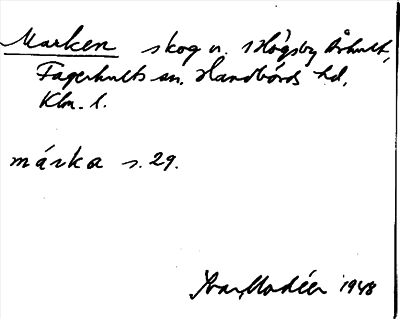 Marken skog n. Högsby Århult,
Fagerhults sn. Handbörds hd,
Klm. l.
márka s. 29.
Ivar Modéer 1948